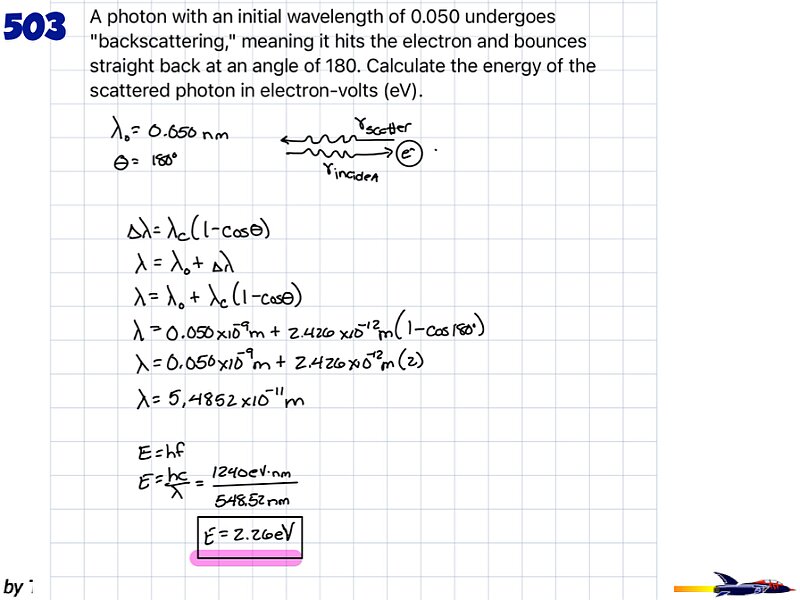 503
A photon with an initial wavelength of 0.050 undergoes
"backscattering," meaning it hits the electron and bounces
straight back at an angle of 180. Calculate the energy of the
scattered photon in electron-volts (eV).
λ₀ = 0.050 nm
θ = 180°
γscatter
e⁻
γincident
Δλ = λc(1-cosθ)
λ = λ₀ + Δλ
λ = λ₀ + λc(1-cosθ)
λ = 0.050×10⁻⁹m + 2.426×10⁻¹²m(1-cos180°)
λ = 0.050×10⁻⁹m + 2.426×10⁻¹²m(2)
λ = 5,4852×10⁻¹¹m
E = hf
E = hc/λ = 1240eV·nm/548.52nm
E = 2.26eV
by